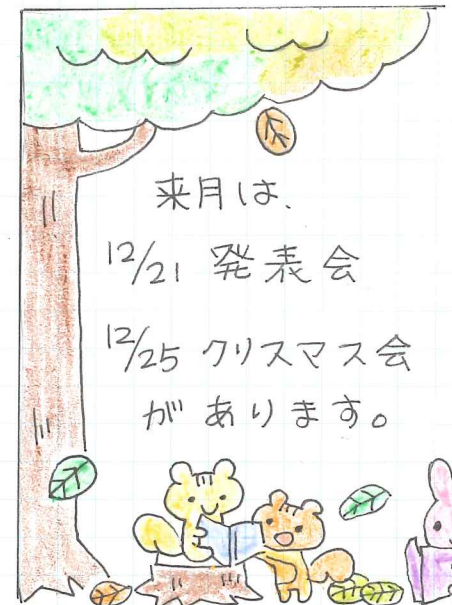 来月は、
12/21 発表会
12/25 クリスマス会
があります。